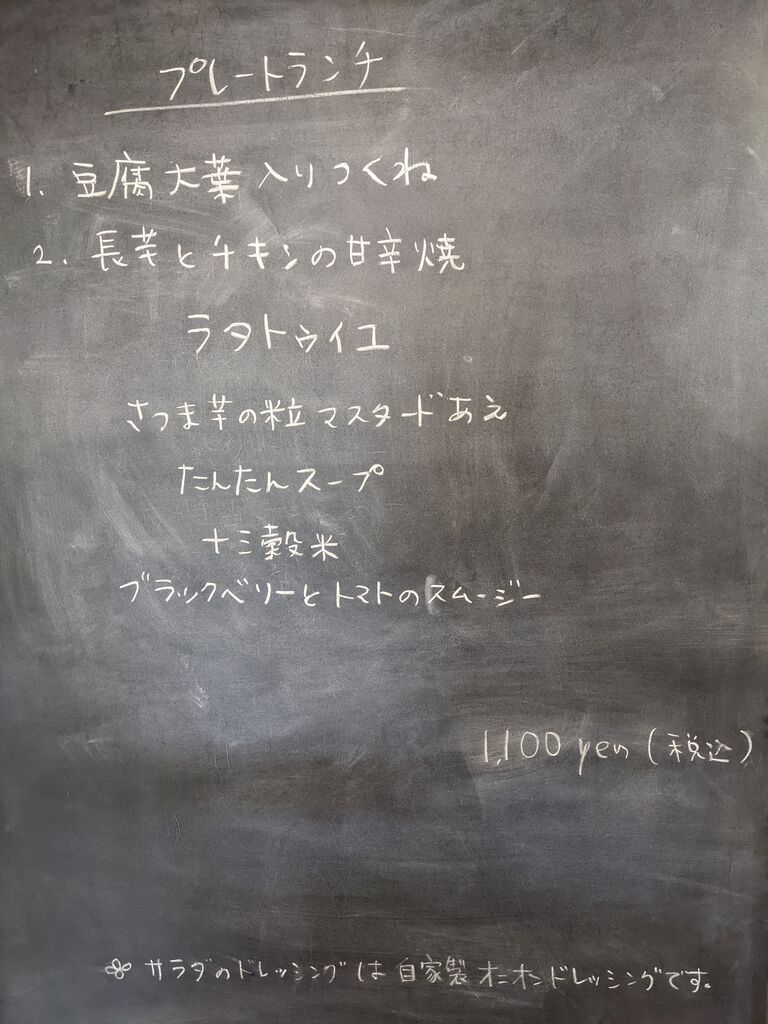 プレートランチ
1. 豆腐大葉入りつくね
2. 長芋とチキンの甘辛焼
ラタトゥイユ
さつま芋の粒マスタードあえ
たんたんスープ
十三穀米
ブラックベリーとトマトのスムージー
1,100 yen (税込)
サラダのドレッシングは自家製オニオンドレッシングです。